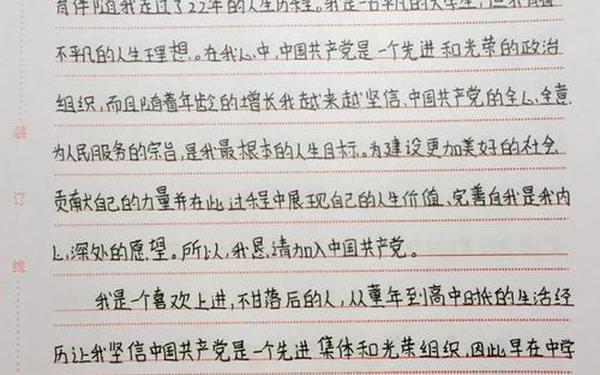 育伴随我走过了22年的人生历程。我是一名平凡的大学生，但我有着
不平凡的人生理想。在我心中，中国共产党是一个先进和光荣的政治
组织，而且随着年龄的增长我越来越坚信，中国共产党的全心全意
为人民服务的宗旨，是我最根本的人生目标。为建设更加美好的社会
贡献自己的力量并在此过程中展现自己的人生价值、完善自我是我内
心深处的愿望。所以，我恳请加入中国共产党。
我是一个喜欢上进，不甘落后的人，从童年到高中时代的生活经
历让我坚信中国共产党是一个先进集体和光荣组织，因此早在中学
装
订
线